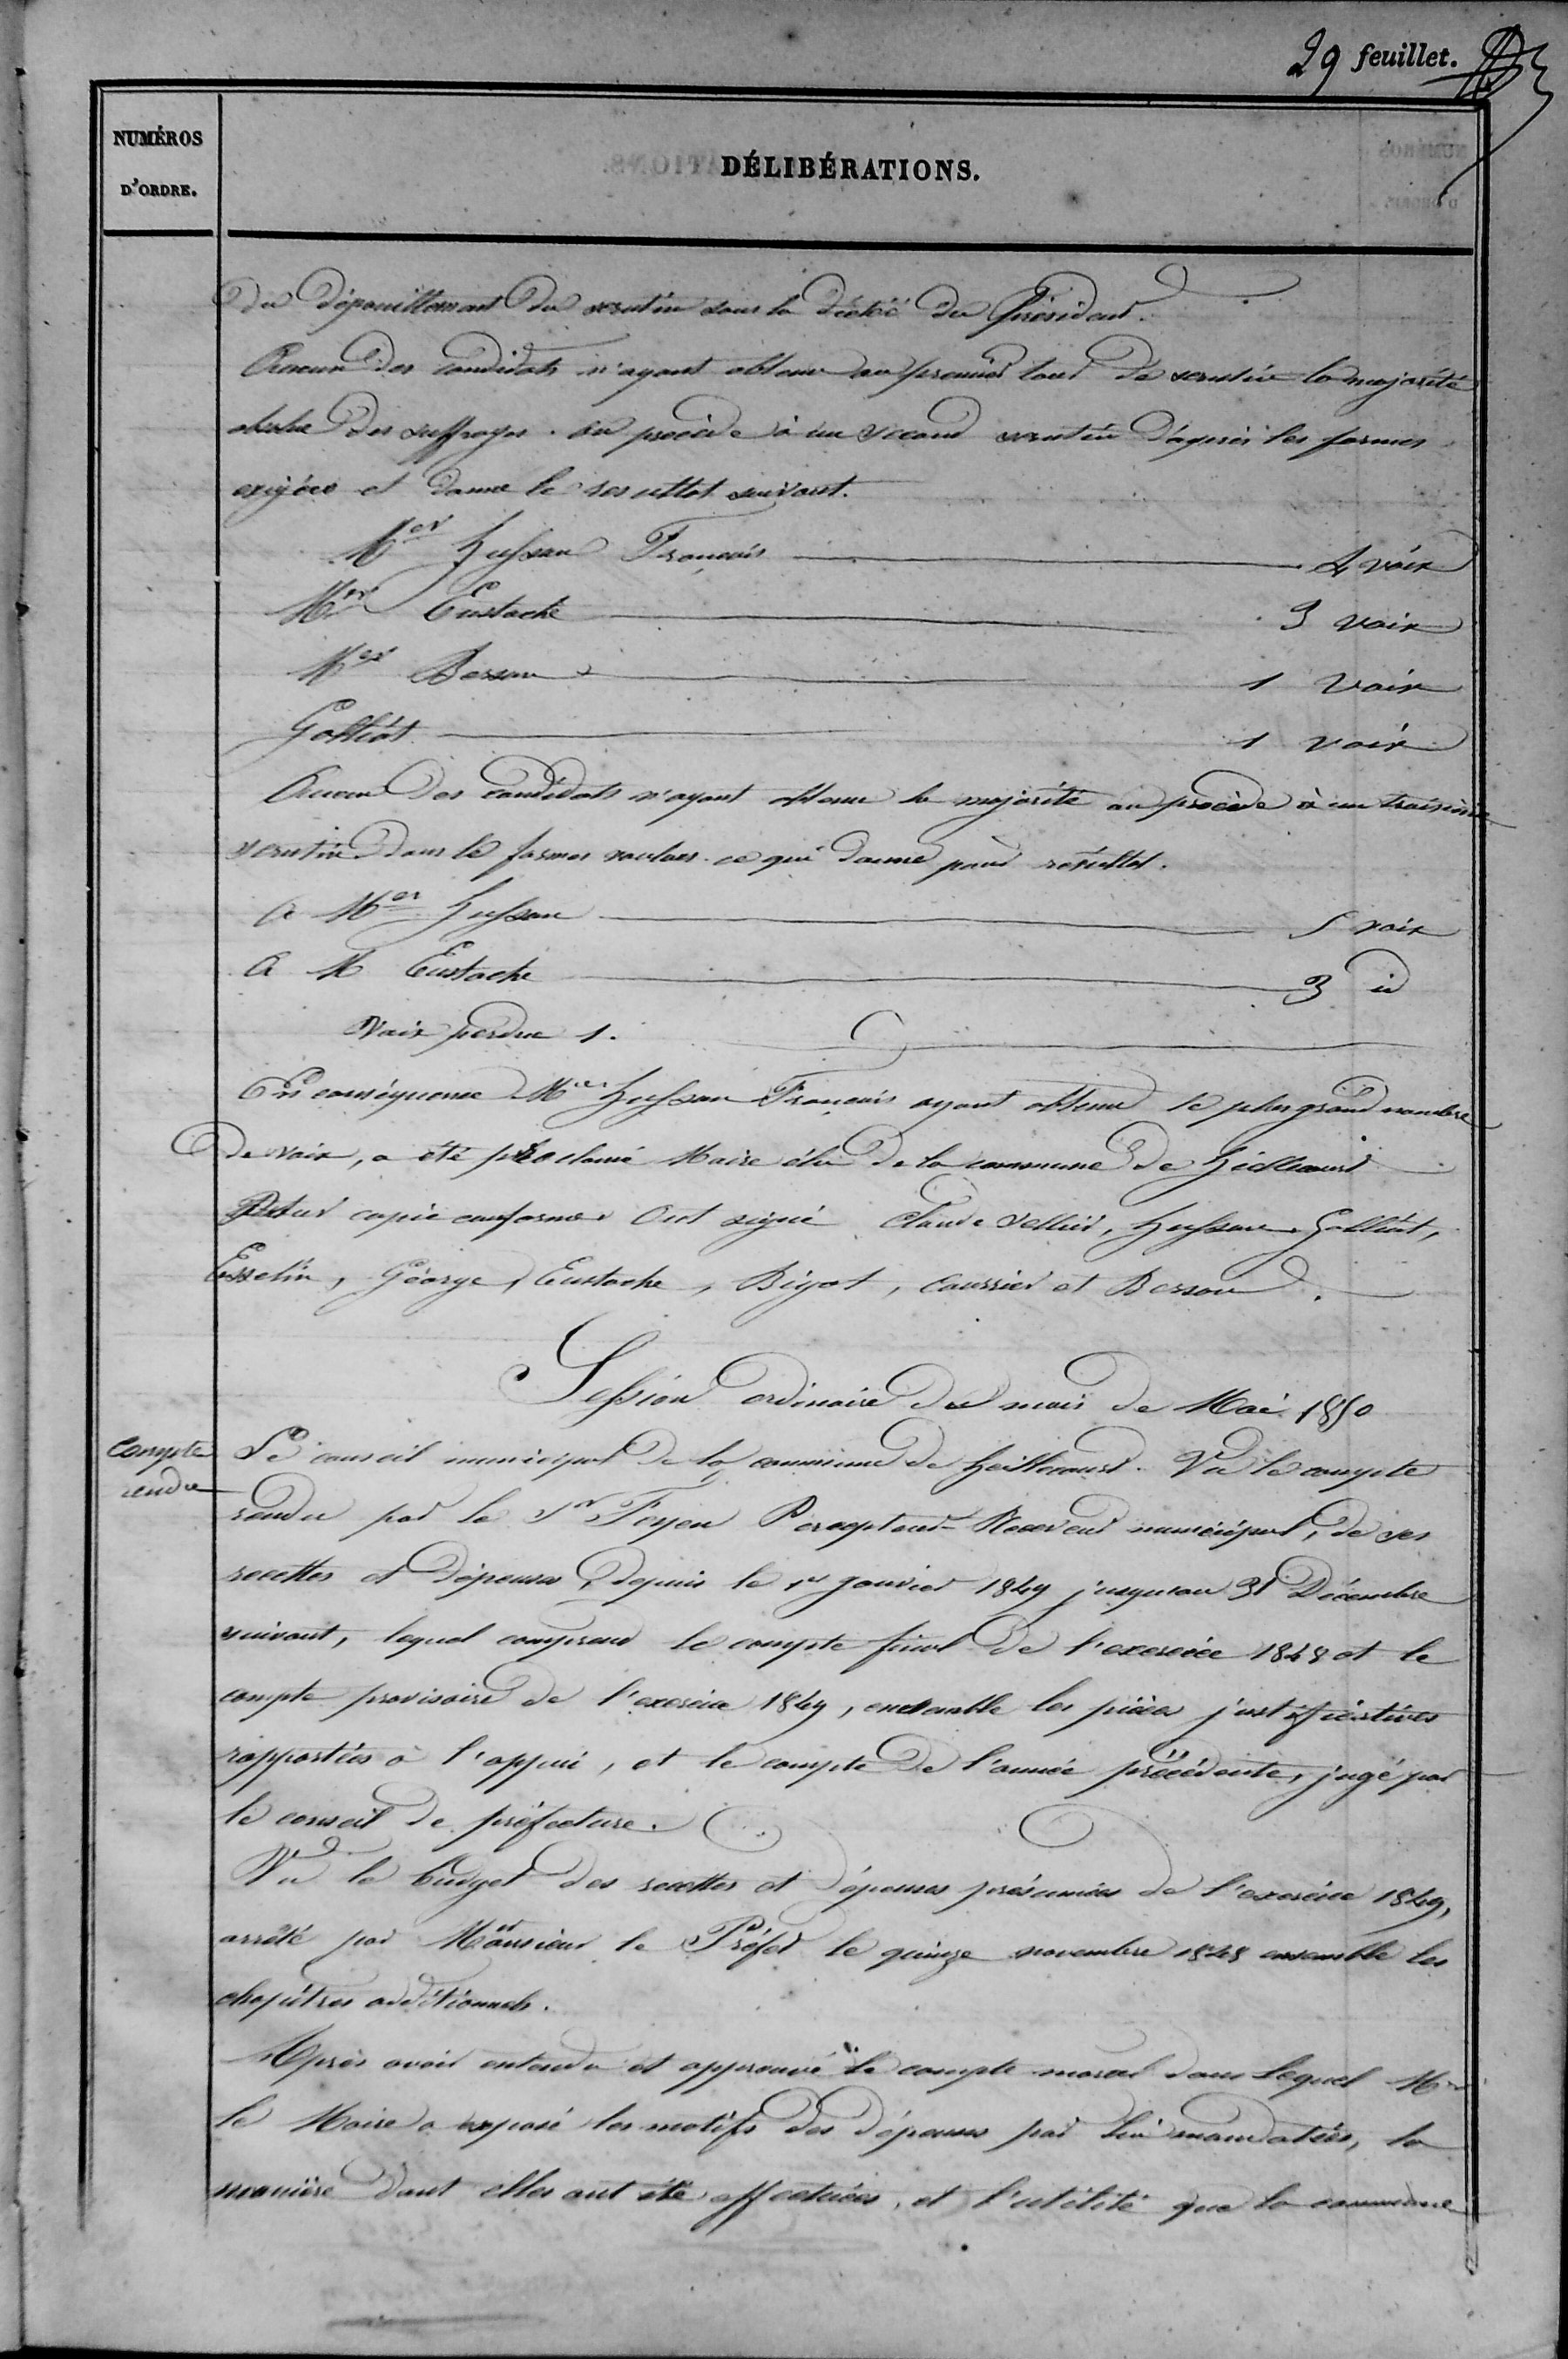 29 feuillet.
NUMÉROS
D'ORDRE.
DÉLIBÉRATIONS.
Du Dépouillement du scrutin sous la dictée du Président.
Aucun des candidats n'ayant obtenu au premier tour de scrutin la majorité
absolue des suffrages. on procède à un second scrutin d'après les formes
exigées et donne le resultat suivant.
Mer Husson François 4 voix
Mer Eustache 3 voix
Mer Besson 1 voix
Golliot 1 voix
Aucun des candidats n'ayant obtenu la majorité on procède à un troisième
scrutin dans le formes voulues. ce qui donne pour résultat.
A Mer Husson 5 voix
A M Eustache 3 id
Voix perdue 1.
En conséquence Mer Husson François ayant obtenu le plus grand nombre
de voix, a été proclamé Maire élu de la commune de Heillecourt
Pour copie conforme Ont signé Claude Sellier, Husson, Golliot,
Esselin, George, Eustache, Bigot, Coussier et Besson.
Session ordinaire du mois de Mai 1850
Compte
rendu
Le conseil municipal de la commune de Heillecourt. Vu le compte
rendu par le Sr Foyen Percepteur-Receveur municipal, de ses
recettes et dépenses, depuis le 1er janvier 1849 jusqu'au 31 Décembre
suivant, lequel comprend le compte final de l'exercice 1848 et le
compte provisoire de l'exercice 1849, ensemble les pièces justificatives
rapportées à l'appui, et le compte de l'année précédente, jugé par
le conseil de préfecture.
Vu le budget des recettes et dépenses présumées de l'exercice 1849,
arrêté par Monsieur le Préfet le quinze novembre 1848 ensemble les
chapitres additionnels.
Après avoir entendu et approuvé le compte moral dans lequel Mr
le Maire a exposé les motifs des dépenses par lui mandatées, la
manière dont elles ont été effectuées, et l'utilité que la commune